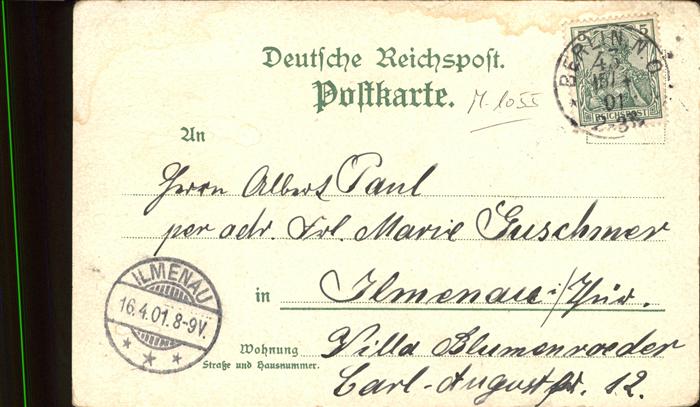 Deutsche Reichspost.
Postkarte.
M. 1055
5 5
REICHSPOST
BERLIN N.O.
43
15/4
01
2-3N
An
Herrn Albert Paul
per adr. Frl. Marie Guschmer
in Ilmenau i/Thür.
Wohnung Villa Blumenroeder
Straße und Hausnummer.
Carl-August str. 12.
ILMENAU
16.4.01.8-9V.